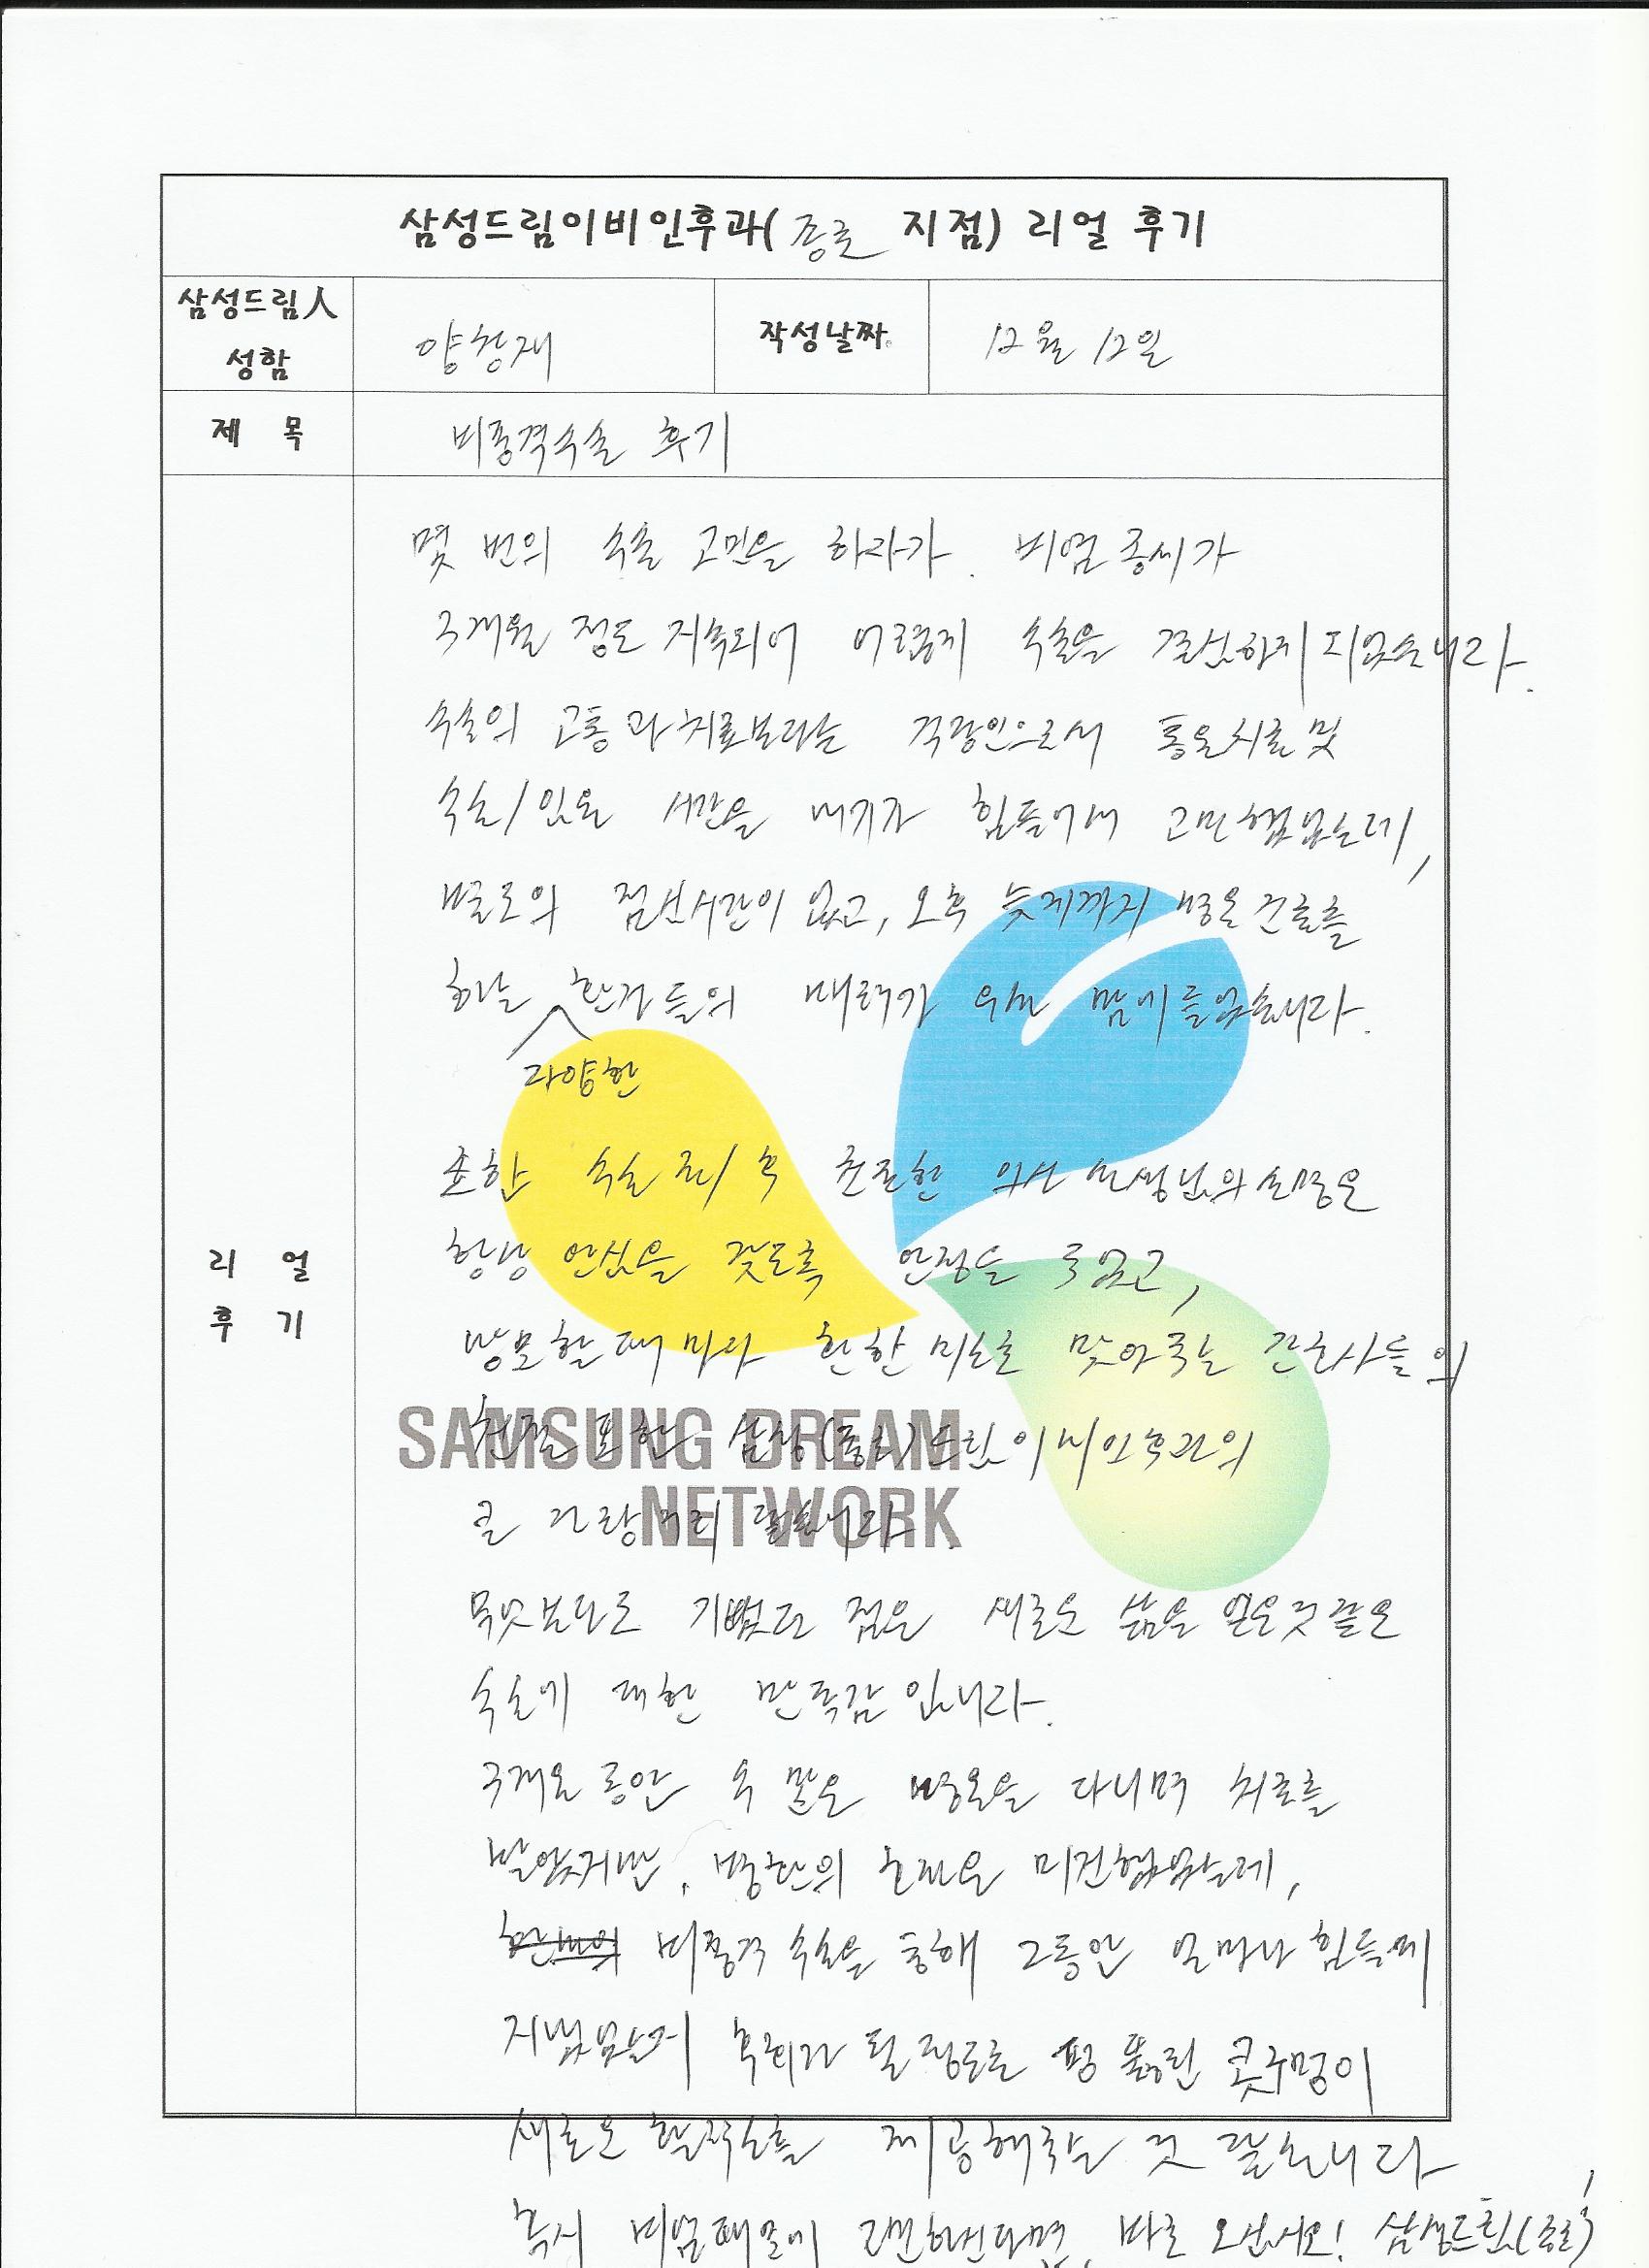 삼성드림이비인후과( 종로 지점) 리얼 후기
삼성드림人
성함
양창재
작성날짜
12월 12일
제 목
비중격수술 후기
몇 번의 수술 고민을 하다가. 비염 증세가
3개월 정도 지속되어 어렵게 수술을 결심하게 되었습니다.
수술의 고통과 치료보다는 직장인으로서 통원치료 및
수술/입원 시간을 내기가 힘들어서 고민했었는데,
별도의 점심시간이 없고, 오후 늦게까지 병원 진료를
하는 환자들의 배려가 우선 맘에 들었습니다.
다양한
또한 수술 전/후 친절한 의사 선생님의 설명은
항상 안심을 갖도록 안정을 주었고,
방문할때마다 환한 미소로 맞아주는 간호사들의
친절 또한 삼성(종로)드림이비인후과의
큰 자랑거리 같습니다.
무엇보다도 기뻤던 점은 새로운 삶을 얻은것 같은
수술에 대한 만족감 입니다.
3개월 동안 수 많은 병원을 다니며 치료를
받았지만, 병환의 호전은 미진했었는데,
비중격 수술을 통해 그동안 얼마나 힘들게
지냈었는지 후회가 될 정도로 펑 뚫린 콧구멍이
새로운 활력소를 제공해주는 것 같습니다
혹시 비염때문에 고민하신다면, 바로 오십시오! 삼성드림(종로)
리 얼
후 기
SAMSUNG DREAM
NETWORK